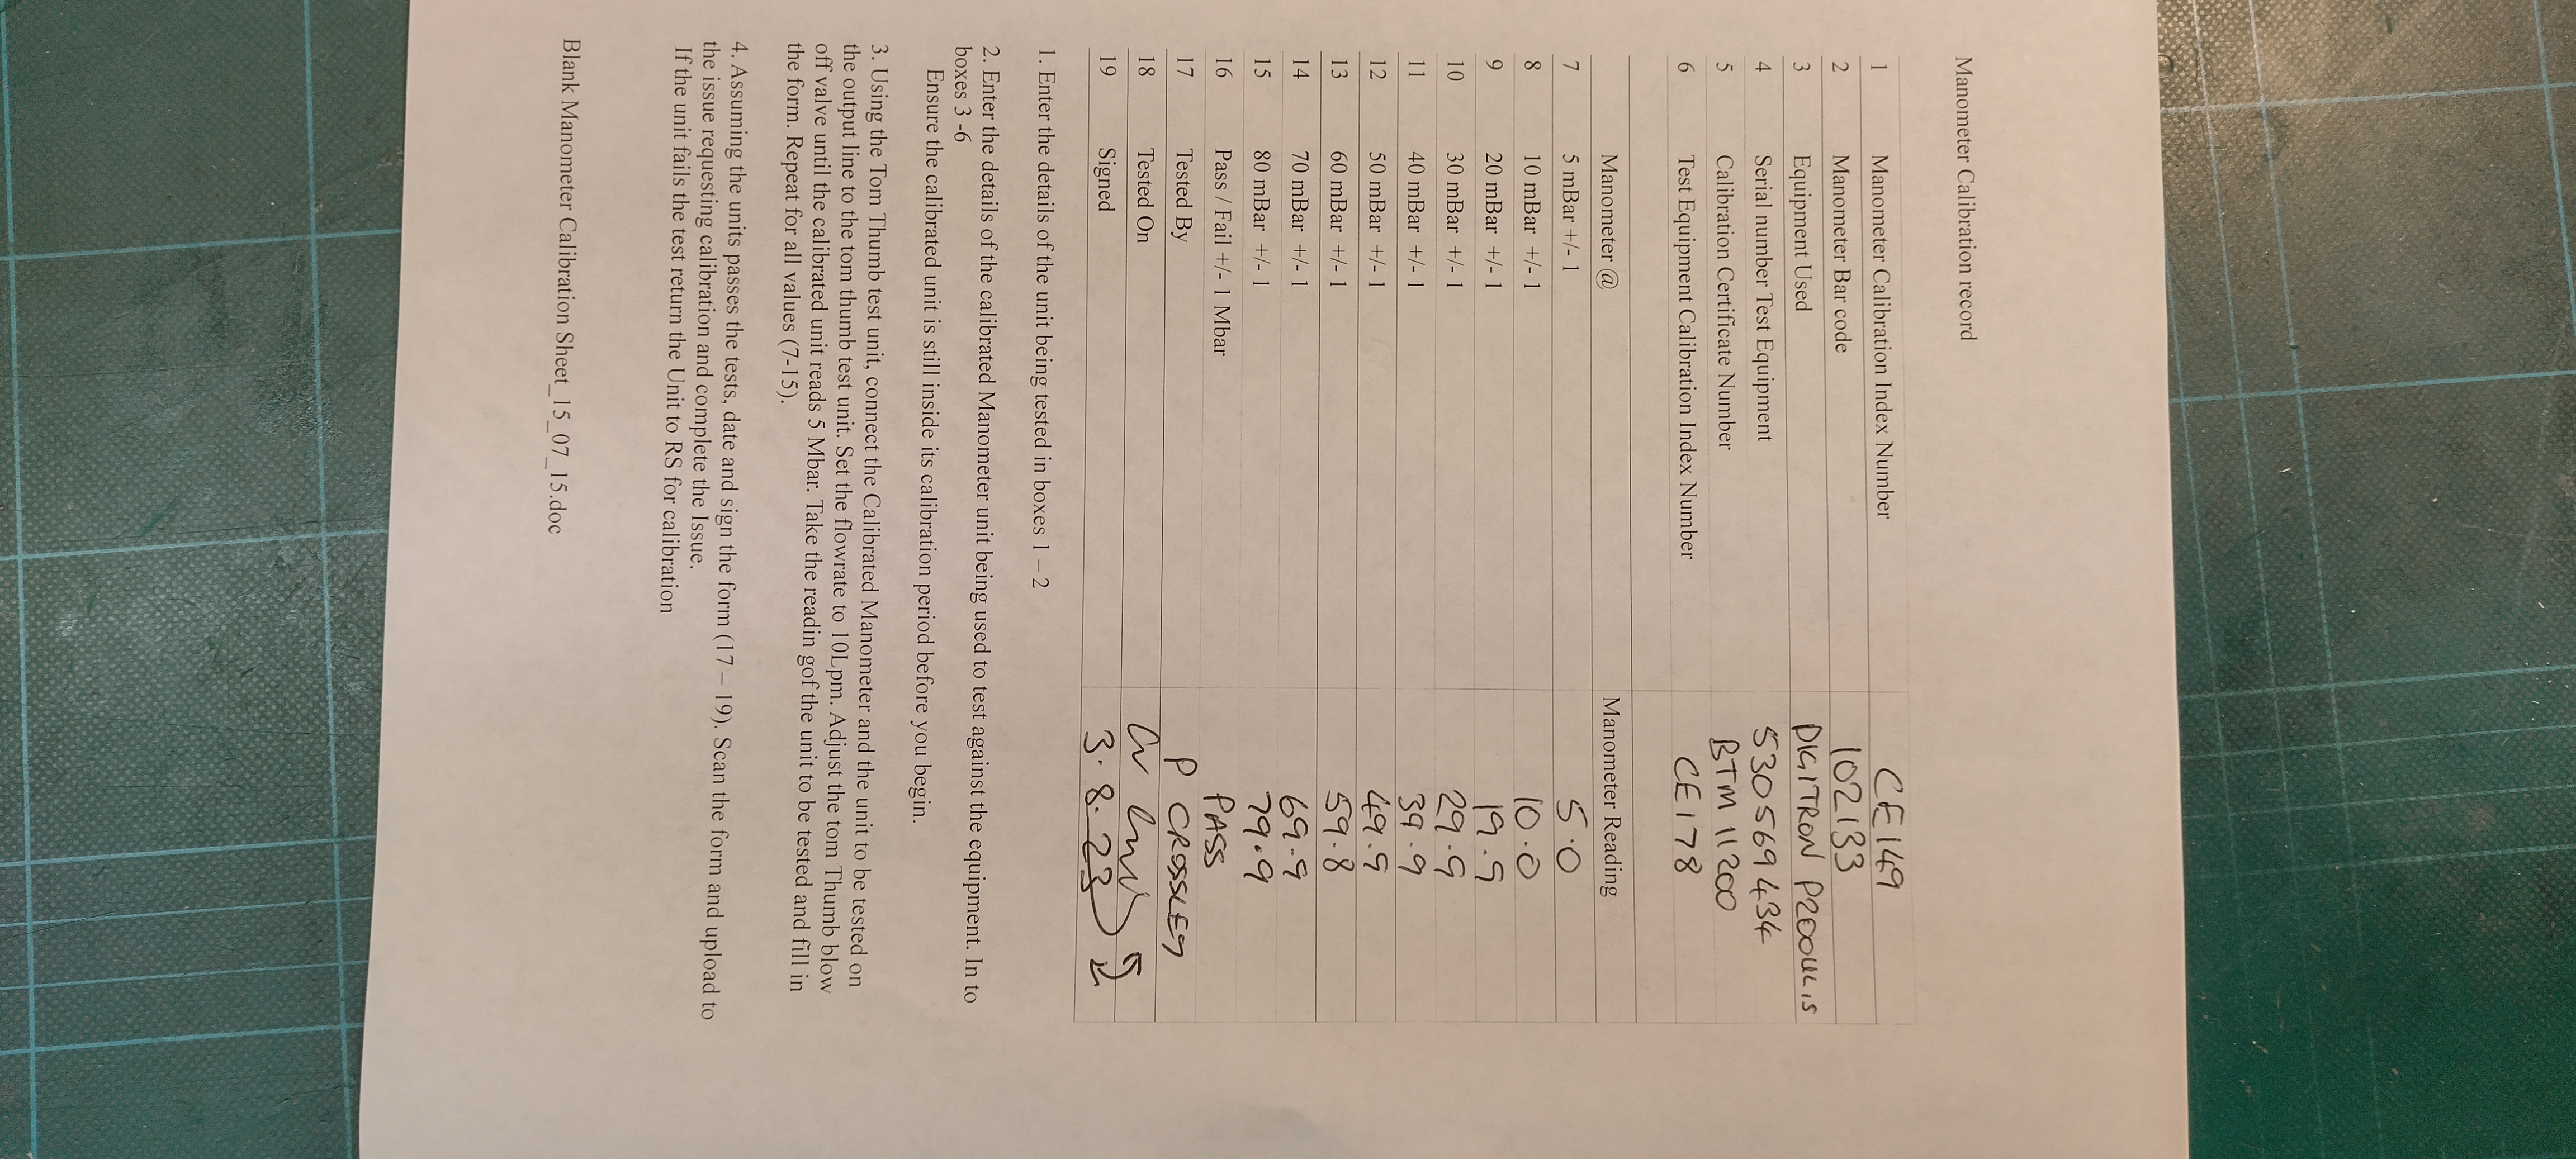 Manometer Calibration record
1 Manometer Calibration Index Number CE149
2 Manometer Bar code 102133
3 Equipment Used DIGITRON P200UL IS
4 Serial number Test Equipment 530569434
5 Calibration Certificate Number BTM 11200
6 Test Equipment Calibration Index Number CE178
Manometer @ Manometer Reading
7 5 mBar +/- 1 5.0
8 10 mBar +/- 1 10.0
9 20 mBar +/- 1 19.9
10 30 mBar +/- 1 29.9
11 40 mBar +/- 1 39.9
12 50 mBar +/- 1 49.9
13 60 mBar +/- 1 59.8
14 70 mBar +/- 1 69.9
15 80 mBar +/- 1 79.9
16 Pass / Fail +/- 1 Mbar PASS
17 Tested By P CROSSLEY
18 Tested On
19 Signed 3.8.23
1. Enter the details of the unit being tested in boxes 1 – 2
2. Enter the details of the calibrated Manometer unit being used to test against the equipment. In to
boxes 3 -6
Ensure the calibrated unit is still inside its calibration period before you begin.
3. Using the Tom Thumb test unit, connect the Calibrated Manometer and the unit to be tested on
the output line to the tom thumb test unit. Set the flowrate to 10Lpm. Adjust the tom Thumb blow
off valve until the calibrated unit reads 5 Mbar. Take the readin gof the unit to be tested and fill in
the form. Repeat for all values (7-15).
4. Assuming the units passes the tests, date and sign the form (17 – 19). Scan the form and upload to
the issue requesting calibration and complete the Issue.
If the unit fails the test return the Unit to RS for calibration
Blank Manometer Calibration Sheet_15_07_15.doc